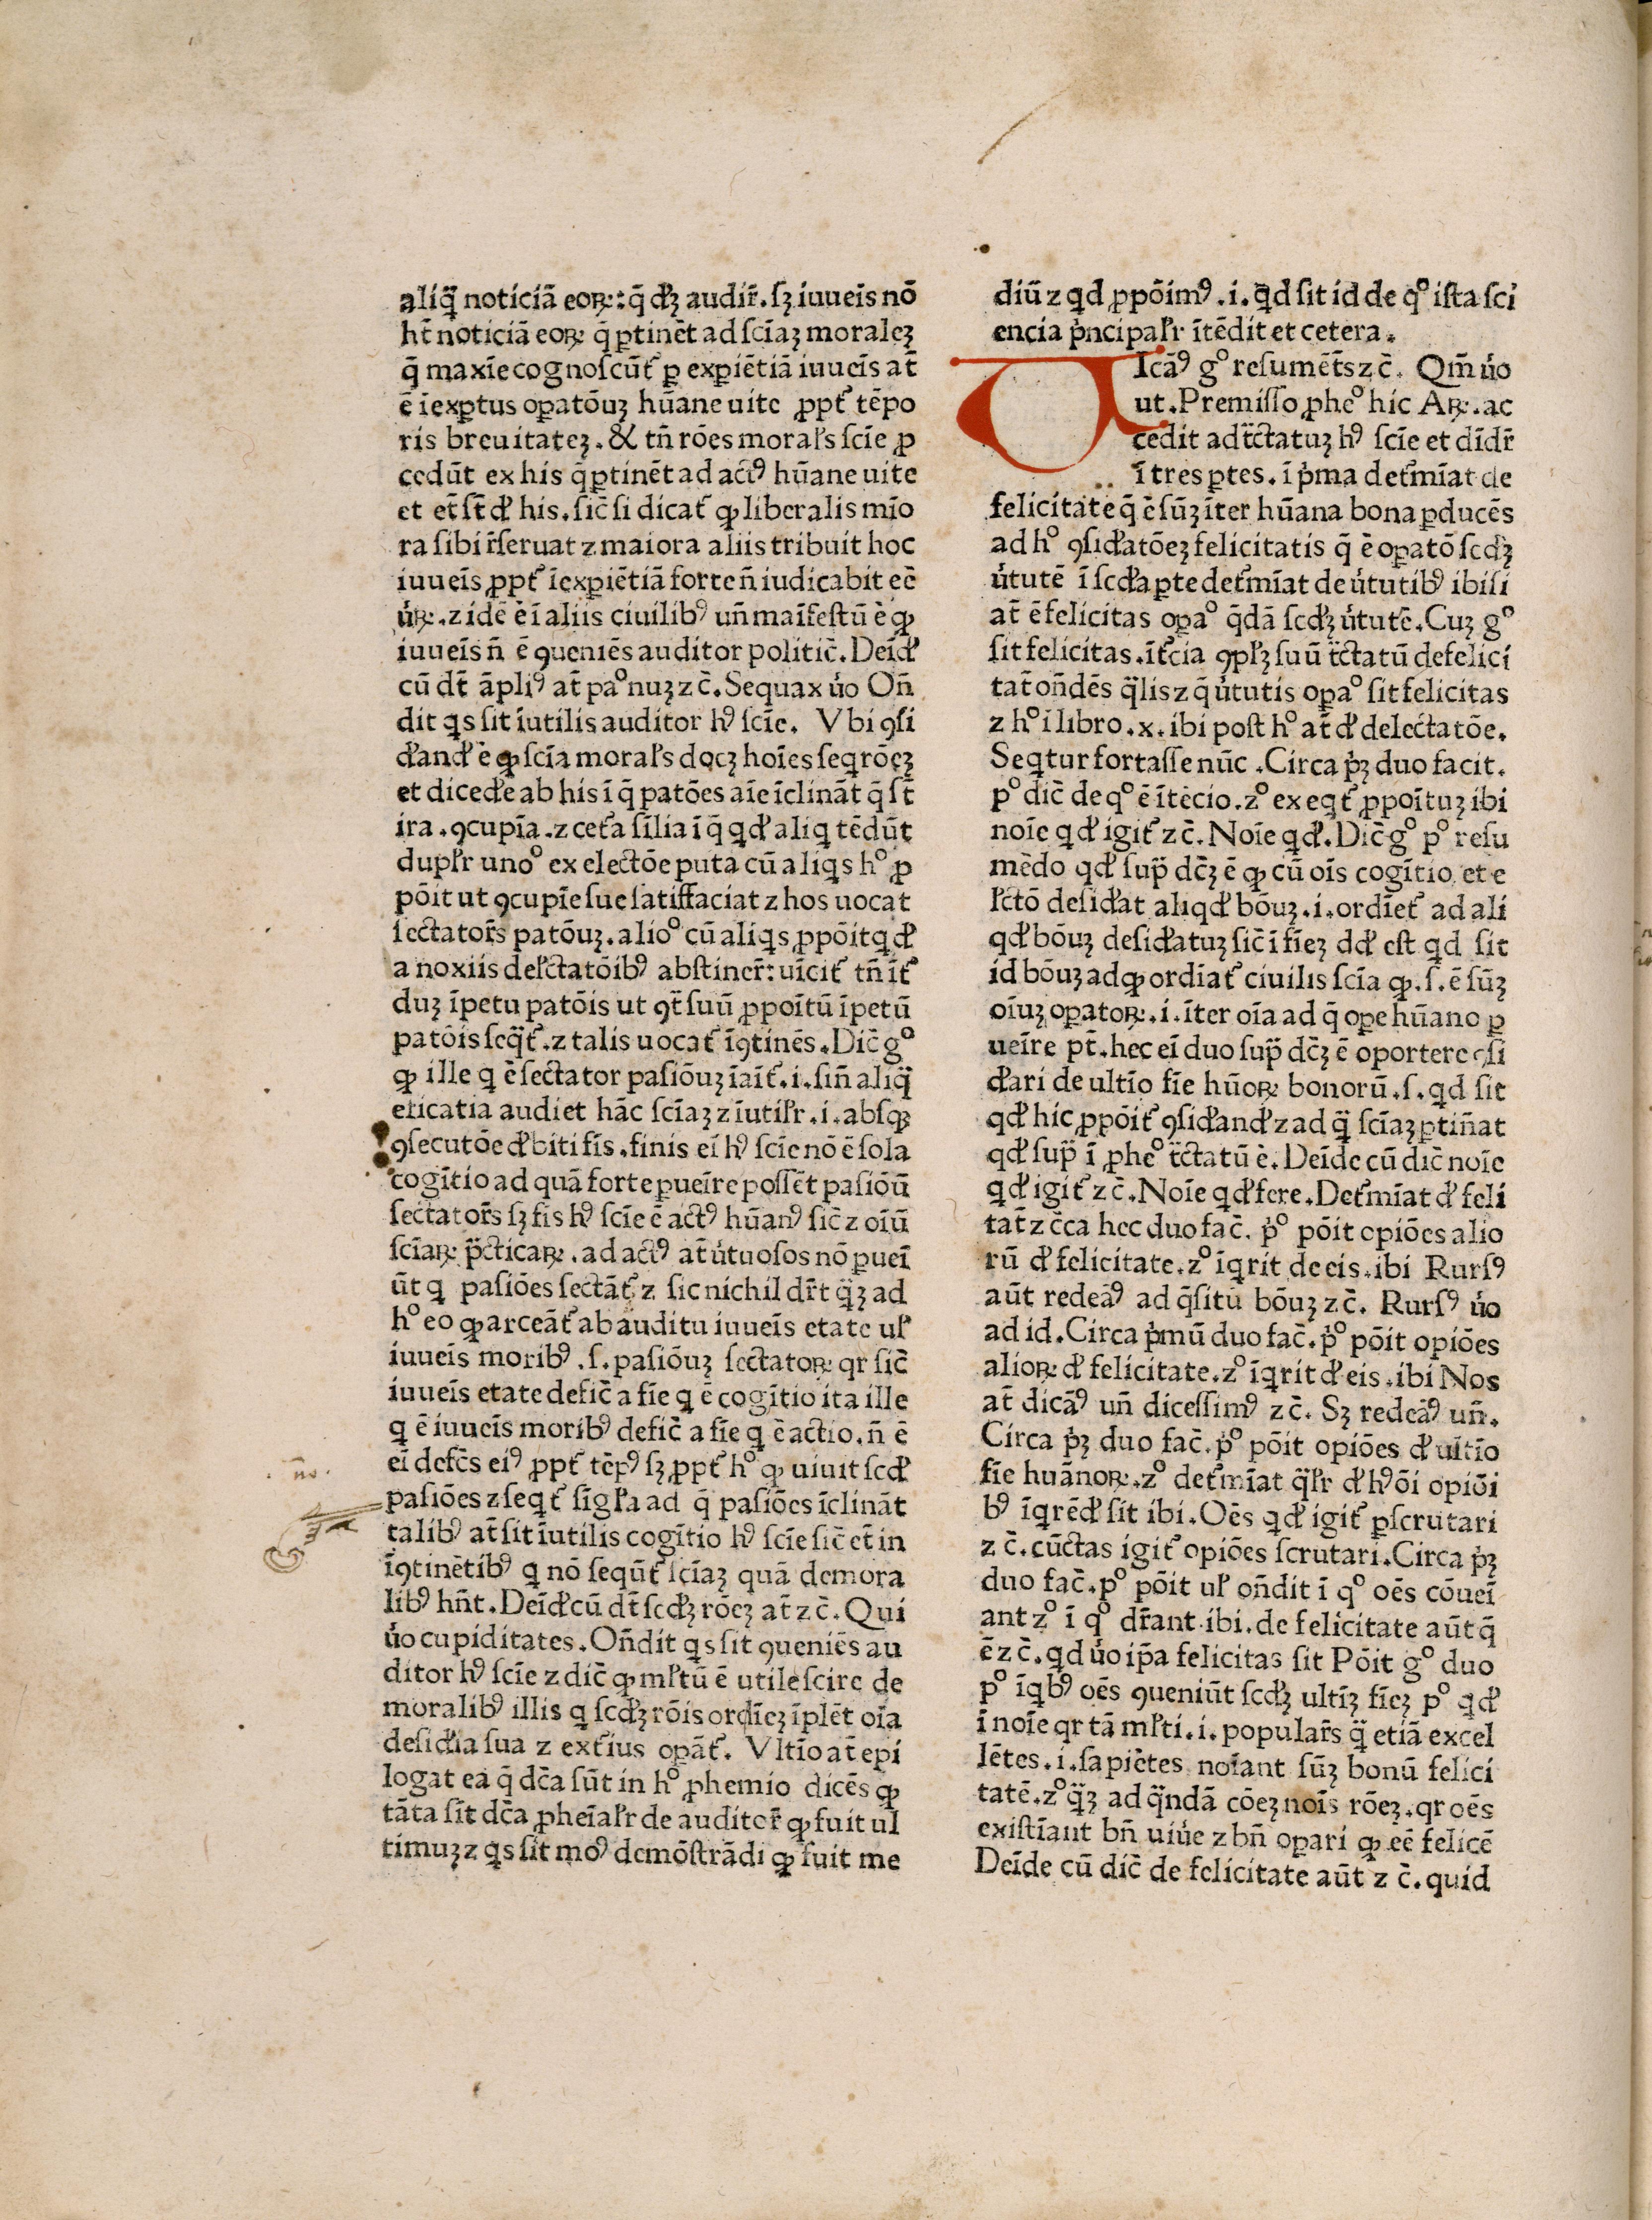 aliqͣ noticiā eoꝝ: q̄ dꝫ audir̄. sꝫ iuueīs nō
ht̄ noticiā eoꝝ q̄ ꝑtinēt ad scīaꝫ moraleꝫ
q̄ maxīe cognoscūt᷑ ꝑ exꝑiētiā iuueīs at̄
ē īexꝑtus oꝑatōuꝫ hūane uite ꝓpt᷑ tēpo
ris breuitateꝫ. & tn̄ rōes moral̕s scīe ꝓ
cedūt ex his q̄ ꝑtinēt ad actꝰ hūane uite
et et̄ st̄ d̕ his. sic̄ si dicat᷑ ꝙ liberalis mīo
ra sibi r̄seruat ⁊ maiora aliis tribuit hoc
iuueīs ꝓpt᷑ īexꝑiētiā forte n̄ iudicabit eē
u̓ꝝ. ⁊ idē ē ī aliis ciuilibꝰ un̄ maīfestū ē ꝙ
iuueīs n̄ ē ꝯueniēs auditor politic̄. Deīd̕
cū dt̄ āpliꝰ at̄ paº nuꝫ ⁊ c̄. Sequax u̓o On̄
dit qͥs sit īutilis auditor hꝰ scīe. Vbi ꝯsi
d̕and̕ ē ꝙ scīa moral̕s docꝫ hoīes seq rōeꝫ
et dicede ab his ī q̄ patōes aīe īclināt q̄ st̄
ira. ꝯcupīa. ⁊ cet᷑a sīlia ī q̄ qd̕ aliq tēdūt
dupl̕r unoº ex electōe puta cū aliqͥs hº ꝓ
pōit ut ꝯcupīe sue satiffaciat ⁊ hos uocat
sectator̄s patōuꝫ. alioº cū aliqͥs ꝓpōit qd̕
a noxiis del̕ctatōibꝰ abstiner̄: uīcit᷑ tn̄ īt᷑
duꝫ īpetu patōis ut ꝯt̄ suū ꝓpoītū īpetū
patōis seqͣt᷑. ⁊ talis uocat᷑ īꝯtinēs. Dic̄ gº
ꝙ ille qͥ ē sectator pasiōuꝫ īaīt᷑. i. sin̄ aliqͣ
eficatia audiet hāc scīaꝫ ⁊ īutil̕r. i. absqꝫ
ꝯsecutōe d̕biti fīs. finis eī hꝰ scīe nō ē sola
cogītio ad quā forte ꝑueīre possēt pasiōū
sectator̄s sꝫ fīs hꝰ scīe ē actꝰ hūanꝰ sic̄ ⁊ oīū
scīaꝝ pͣcticaꝝ. ad actꝰ at̄ u̓tuosos nō ꝑueī
ūt qͥ pasiōes sectāt᷑ ⁊ sic nichil dr̄t qͣꝫ ad
hº eo ꝙ arceāt᷑ ab auditu iuueīs etate ul̕
iuueīs moribꝰ. s. pasiōuꝫ sectatoꝝ qr sic̄
iuueīs etate defic̄ a fīe qͥ ē cogītio ita ille
qͥ ē iuueīs moribꝰ defic̄ a fīe qͥ ē actio. n̄ ē
eī defēs eiꝰ ꝓpt᷑ tēpꝰ sꝫ ꝓpt᷑ hº ꝙ uiuit scd̕
pasiōes ⁊ seqt᷑ sīgl̕a ad q̄ pasiōes īclināt
talibꝰ at̄ sit īutilis cogītio hꝰ scīe sic̄ et̄ in
īꝯtinētibꝰ qͥ nō sequt᷑ scīaꝫ quā demora
libꝰ hn̄t. Deīd̕ cū dt̄ scd̕ꝫ rōeꝫ at̄ ⁊ c̄. Qui
u̓o cupiditates. On̄dit qͥs sit ꝯueniēs au
ditor hꝰ scīe ⁊ dic̄ ꝙ ml̕tū ē utile scire de
moralibꝰ illis qͥ scd̕ꝫ rōis ordīeꝫ īplēt oīa
desid̕ia sua ⁊ ext᷑ius oꝑāt᷑. Vltīo at̄ epi
logat ea q̄ dc̄a sūt in hº ꝓhemio dicēs ꝙ
tāta sīt dc̄a ꝓheīal̕r de auditor̄ ꝙ fuit ul
timuꝫ ⁊ qͥs sit moꝰ demōstrādi ꝙ fuit me
diū ⁊ qͥd ꝓpōimꝰ. i. qͥd sit id de qº ista sci
encia pͥncipal̕r ītēdit et cetera.
Icāꝰ gº resumēt̄s ⁊ c̄. Qm̄ u̓o
ut. Premisso ꝓheº hic Aꝝ. ac
cedit ad tͣctatuꝫ hꝰ scīe et dīdr̄
ī tres ꝑtes. ī pͥma det᷑mīat de
felicitate q̄ ē sūꝫ īter hūana bona ꝑducēs
ad hº ꝯsid̕atōeꝫ felicitatis q̄ ē oꝑatō scd̕ꝫ
u̓tutē ī scd̕a ꝑte det᷑mīat de u̓tutibꝰ ibi si
at̄ ē felicitas oꝑaº q̄dā scd̕ꝫ u̓tutē. Cuꝫ gº
sit felicitas. īt᷑cia ꝯpl̕ꝫ suū tͣctatū de felici
tat̄ on̄dēs qͣlis ⁊ q̄ u̓tutis oꝑaº sit felicitas
⁊ hº i libro .x. ibi post hº at̄ d̕ delectatōe.
Seqͥtur fortasse nūc. Circa pͥꝫ duo facit.
pº dic̄ de qº ē ītēcio. ⁊º exeqt᷑ ꝓpoītuꝫ ibi
noīe qd̕ igit᷑ ⁊ c̄. Noīe qd̕. Dic̄ gº pº resu
mēdo qd̕ supͣ dc̄ꝫ ē ꝙ cū oīs cogītio et e
l̕ctō desid̕at aliqd̕ bōuꝫ. i. ordīet᷑ ad ali
qd̕ bōuꝫ desid̕atuꝫ sic̄ ī fīeꝫ dd̕ est qͥd sit
id bōuꝫ ad ꝙ ordīat᷑ ciuilis scīa ꝙ. s. ē sūꝫ
oīuꝫ oꝑatoꝝ. i. īter oīa ad q̄ oꝑe hūano ꝑ
ueīre pt̄. hec eī duo supͣ dc̄ꝫ ē oportere ꝯsi
d̕ari de ultīo fīe hūoꝝ bonorū. s. qͥd sit
qd̕ hic ꝓpōit᷑ ꝯsid̕and̕ ⁊ ad qͣ scīaꝫ ꝑtin̄at
qd̕ supͣ ī ꝓheº tͣctatū ē. Deīde cū dic̄ noīe
qd̕ igit᷑ ⁊ c̄. Noīe qd̕ fere. Det᷑mīat d̕ feli
tat̄ ⁊ cc̄a hec duo fac̄. pͥº pōit opiōes alio
rū d̕ felicitate. ⁊º īqͥrit de eis. ibi Rursꝰ
aūt redeāꝰ ad q̄situ bōuꝫ ⁊ c̄. Rursꝰ u̓o
ad id. Circa pͥmū duo fac̄. pͥº pōit opiōes
alioꝝ d̕ felicitate. ⁊º īqͥrit d̕ eis. ibi Nos
at̄ dicāꝰ un̄ dicessimꝰ ⁊ c̄. Sꝫ redeāꝰ un̄.
Circa pͥꝫ duo fac̄. pͥº pōit opiōes d̕ ultīo
fīe huānoꝝ. ⁊º det᷑mīat qͣl̕r d̕ hꝰōi opiōi
bꝰ īqͥrēd̕ sit ibi. Oēs qd̕ igit᷑ ꝑscrutari
⁊ c̄. cūctas igit᷑ opiōes scrutari. Circa pͥꝫ
duo fac̄. pº pōit ul̕ on̄dit ī qº oēs cōueī
ant ⁊º ī qº dr̄ant. ibi. de felicitate aūt q̄
ē ⁊ c̄. qͥd u̓o ip̄a felicitas sit Pōit gº duo
pº īqͥbꝰ oēs ꝯueniūt scd̕ꝫ ultīꝫ fīeꝫ pº qd̕
ī noīe qr tā ml̕ti. i. popular̄s qͣ etiā excel
lētes. i. sapiētes noīant sūꝫ bonū felici
tatē. ⁊º qͣꝫ ad qͣndā cōeꝫ noīs rōeꝫ. qr oēs
existīant bn̄ uiu̓e ⁊ bn̄ oꝑari ꝙ eē felicē
Deīde cū dic̄ de felicitate aūt ⁊ c̄. quid